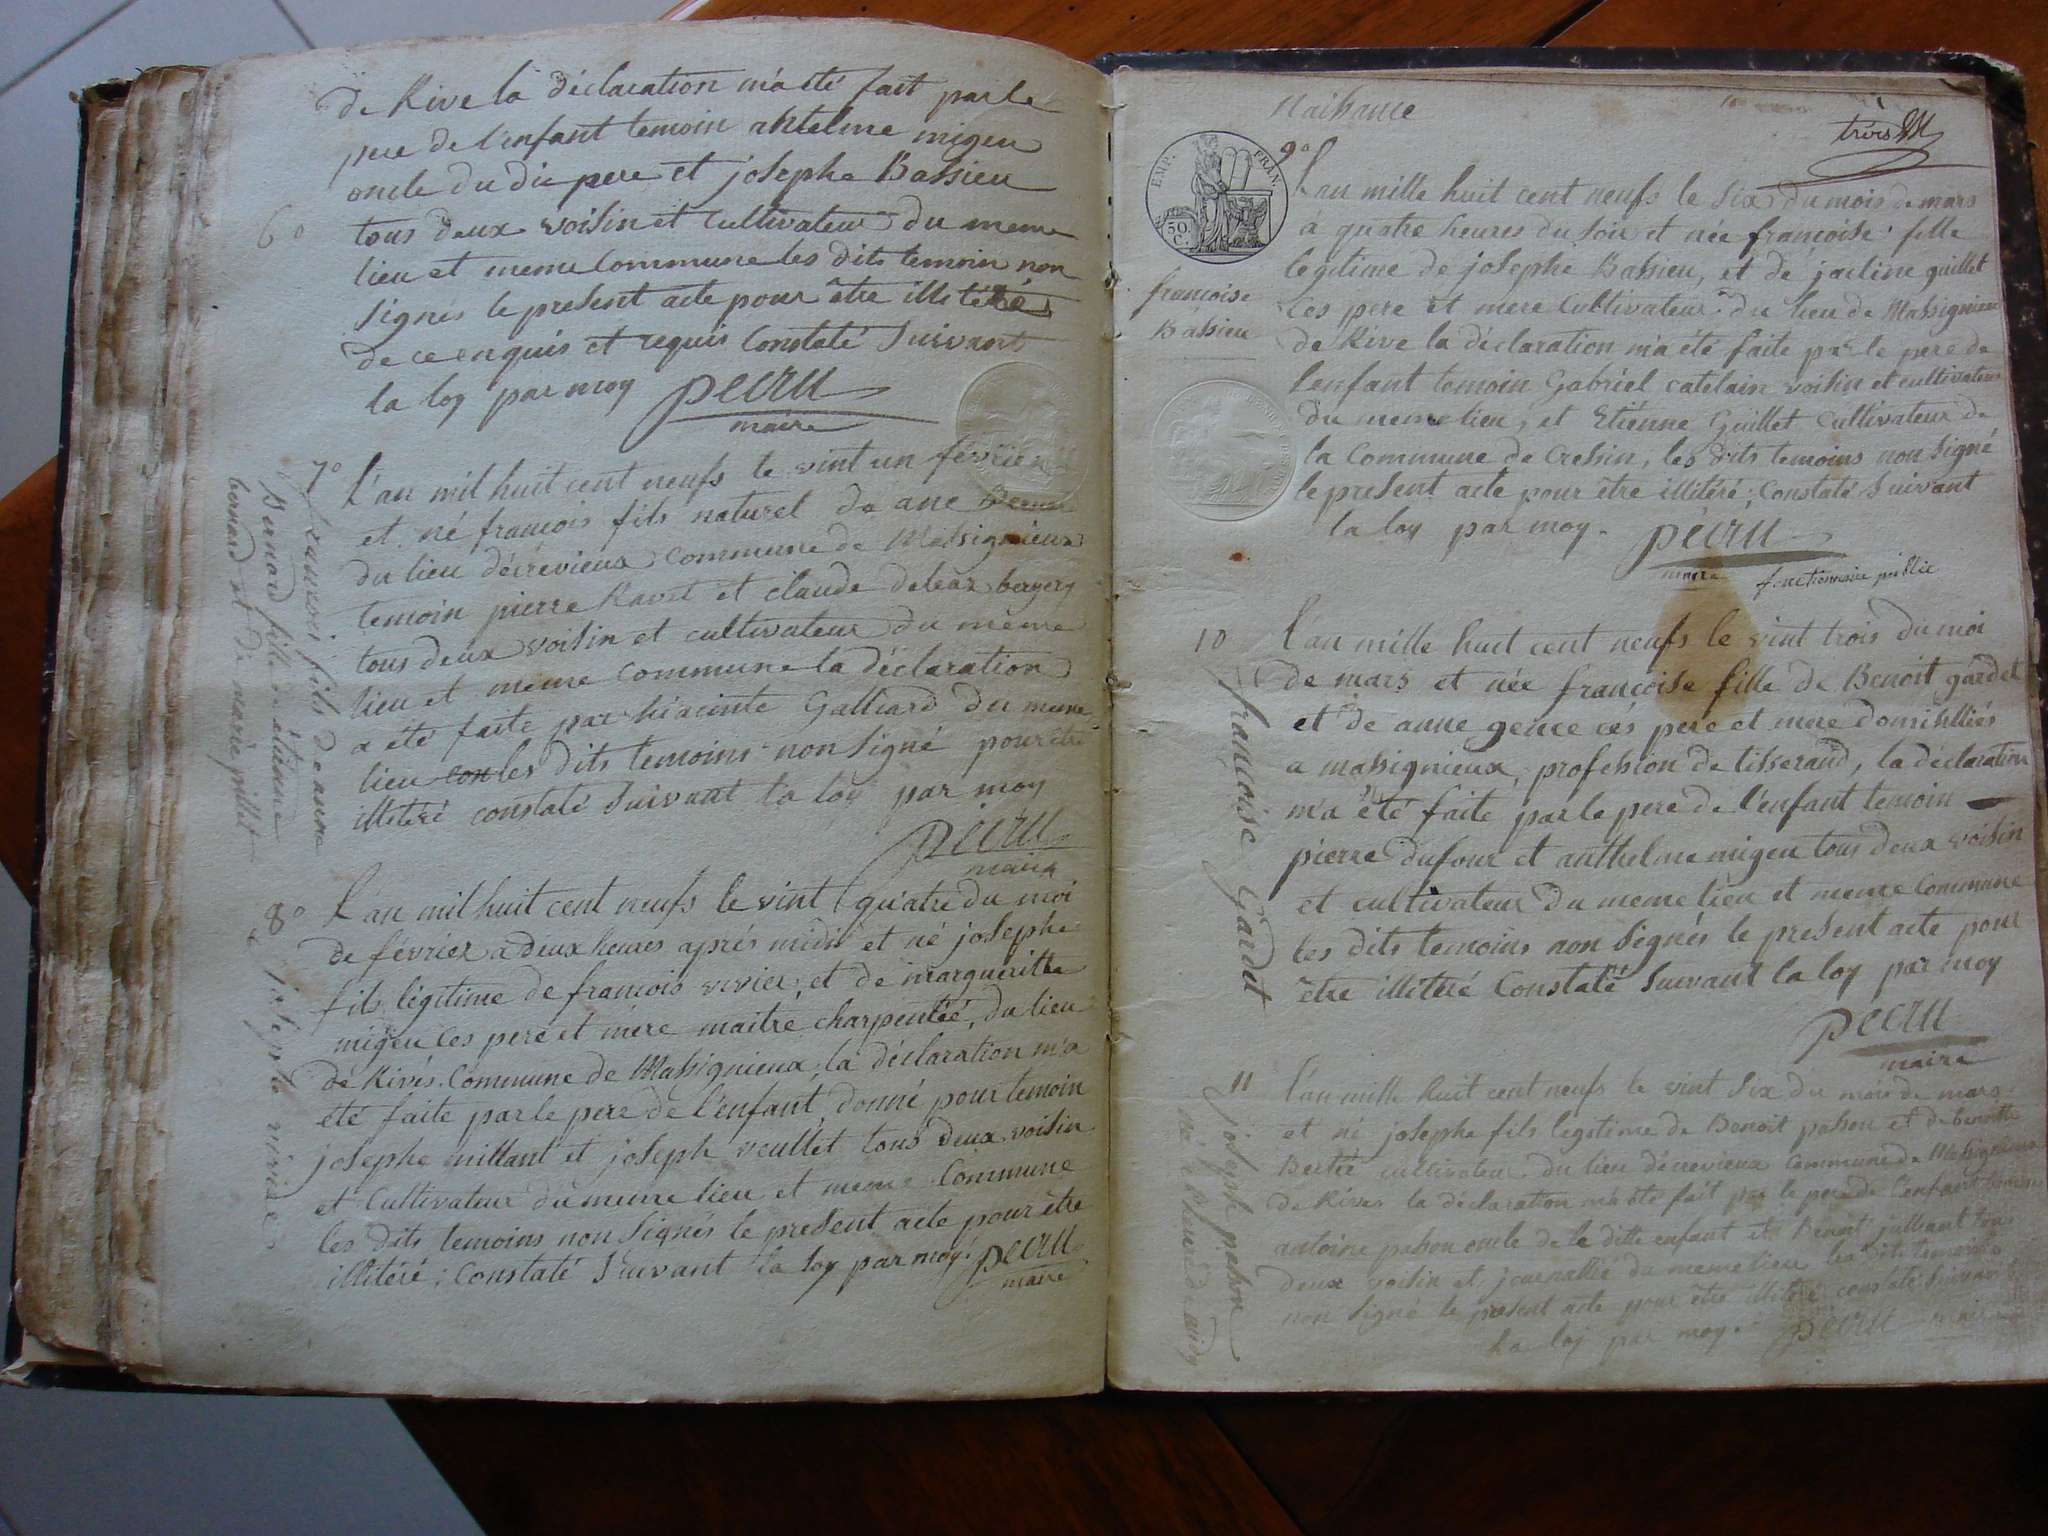 de Rive la déclaration m'a été fait par le
pere de l'enfant temoin antelme migeu
oncle du dit pere et josephe Bassieu
6°
tous deux voisin et cultivateur du meme
lieu et meme commune les dits temoin non
signés le present acte pour être illitéré
de ce enquis et requis Constaté Suivant
la loy par moy pecru
maire
7°
françois fils de anne
Bernard fille de etienne
bernard et de marie pillet
L'an mil huit cent neufs le vint un février
et né françois fils naturel de ane
du lieu décrevieux commune de Massignieux
temoin pierre Ravet et claude
tous deux voisin et cultivateur du même
lieu et meme commune la déclaration
a été faite par hiacinte Galliard du meme
lieu con les dits temoins non signé pour être
illitéré constaté suivant la loy par moy
pecru
maire
8°
josephe vivier
L'an mil huit cent neufs le vint quatre du moi
de février a deux heures aprés midi et né josephe
fils légitime de francois vivier, et de margueritte
migeu ces pere et mere maitre charpentié, du lieu
de Rives Commune de Massignieux la déclaration m'a
été faite par le pere de l'enfant, donné pour temoin
josephe millant et joseph veullet tous deux voisin
et Cultivateur du meme lieu et meme Commune
les dits temoins non signés le present acte pour être
illitéré; Constaté Suivant la loy par moy pecru
maire
Naissance
trois
EMP. FRAN.
50 C.
9°
françoise
Bassieu
L'an mille huit cent neufs le six du mois de mars
à quatre heures du soir et née françoise fille
legitime de josephe Bassieu, et de jacline guillet
ces pere et mere cultivateur du lieu de Massignieux
de Rive la déclaration m'a été faite par le pere de
l'enfant temoin Gabriel catelain voisin et cultivateur
du meme lieu, et Etiénne Guillet cultivateur de
la Commune de Cressin, les dits temoins non signé
le present acte pour être illitéré; Constaté Suivant
la loy par moy. pecru
maire fonctionnaire public
10
françoise Gardet
L'an mille huit cent neufs le vint trois du moi
de mars et née françoise fille de Benoit gardet
et de anne gence cés pere et mere domihlliés
a massignieux, profession de tisserand, la déclaration
m'a été faite par le pere de l'enfant temoin
pierre dufour et anthelme migeu tous deux voisin
et cultivateur du meme lieu et meme Commune
les dits temoins non signés le present acte pour
être illitéré Constaté Suivant la loy par moy
pecru
maire
11
joseph pahon
L'an mille huit cent neufs le vint six du mois de mars
et né josephe fils legitime de Benoit pahon et de benoitte
Bertié cultivateur du lieu décrevieux commune de Massignieux
de Rives la déclaration m'a été fait par le pere de l'enfant temoins
antoine pahon oncle de le ditte enfant et Benoit julliant tous
deux voisin et journallié du meme lieu les dits temoins
non signé le present acte pour être illitéré constaté suivant
la loy par moy. pecru maire